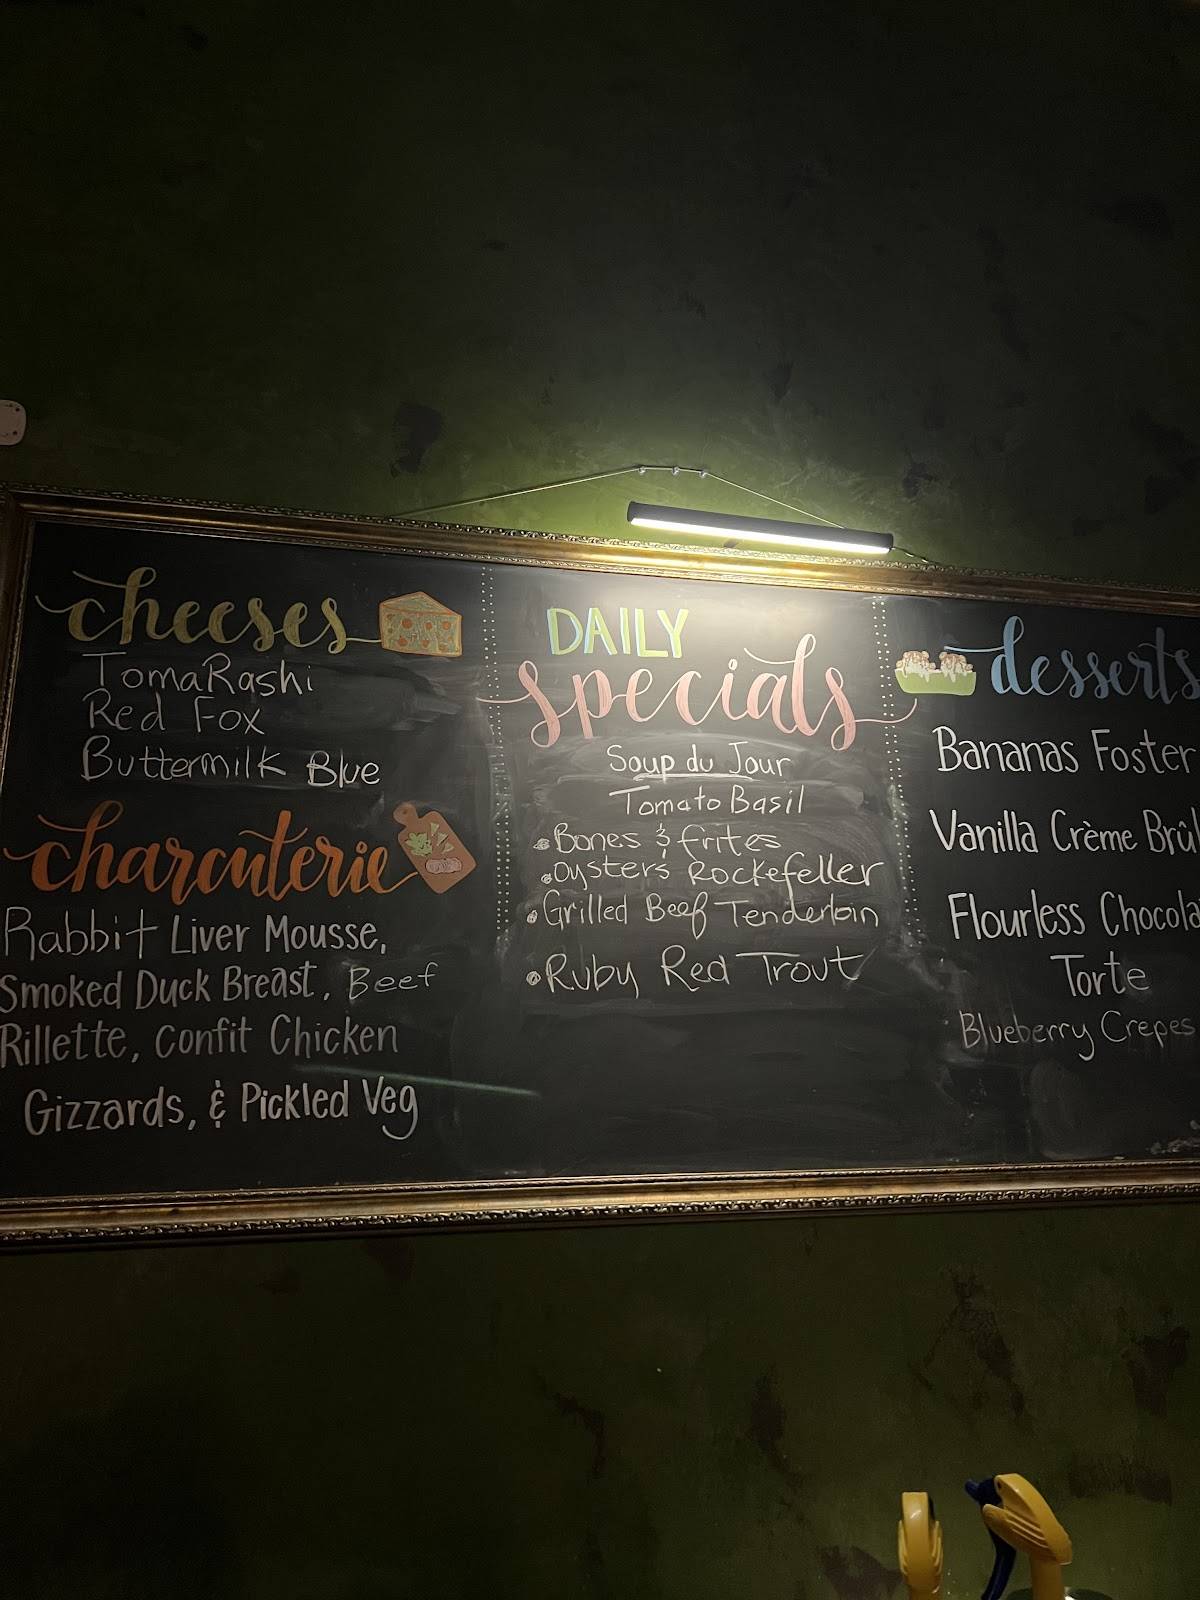 cheeses
TomaRashi
Red Fox
Buttermilk Blue
charcuterie
Rabbit Liver Mousse,
Smoked Duck Breast, Beef
Rillette, Confit Chicken
Gizzards, & Pickled Veg
DAILY
specials
Soup du Jour
Tomato Basil
• Bones & frites
• Oysters Rockefeller
• Grilled Beef Tenderloin
• Ruby Red Trout
desserts
Bananas Foster
Vanilla Crème Brûl
Flourless Chocola
Torte
Blueberry Crepes